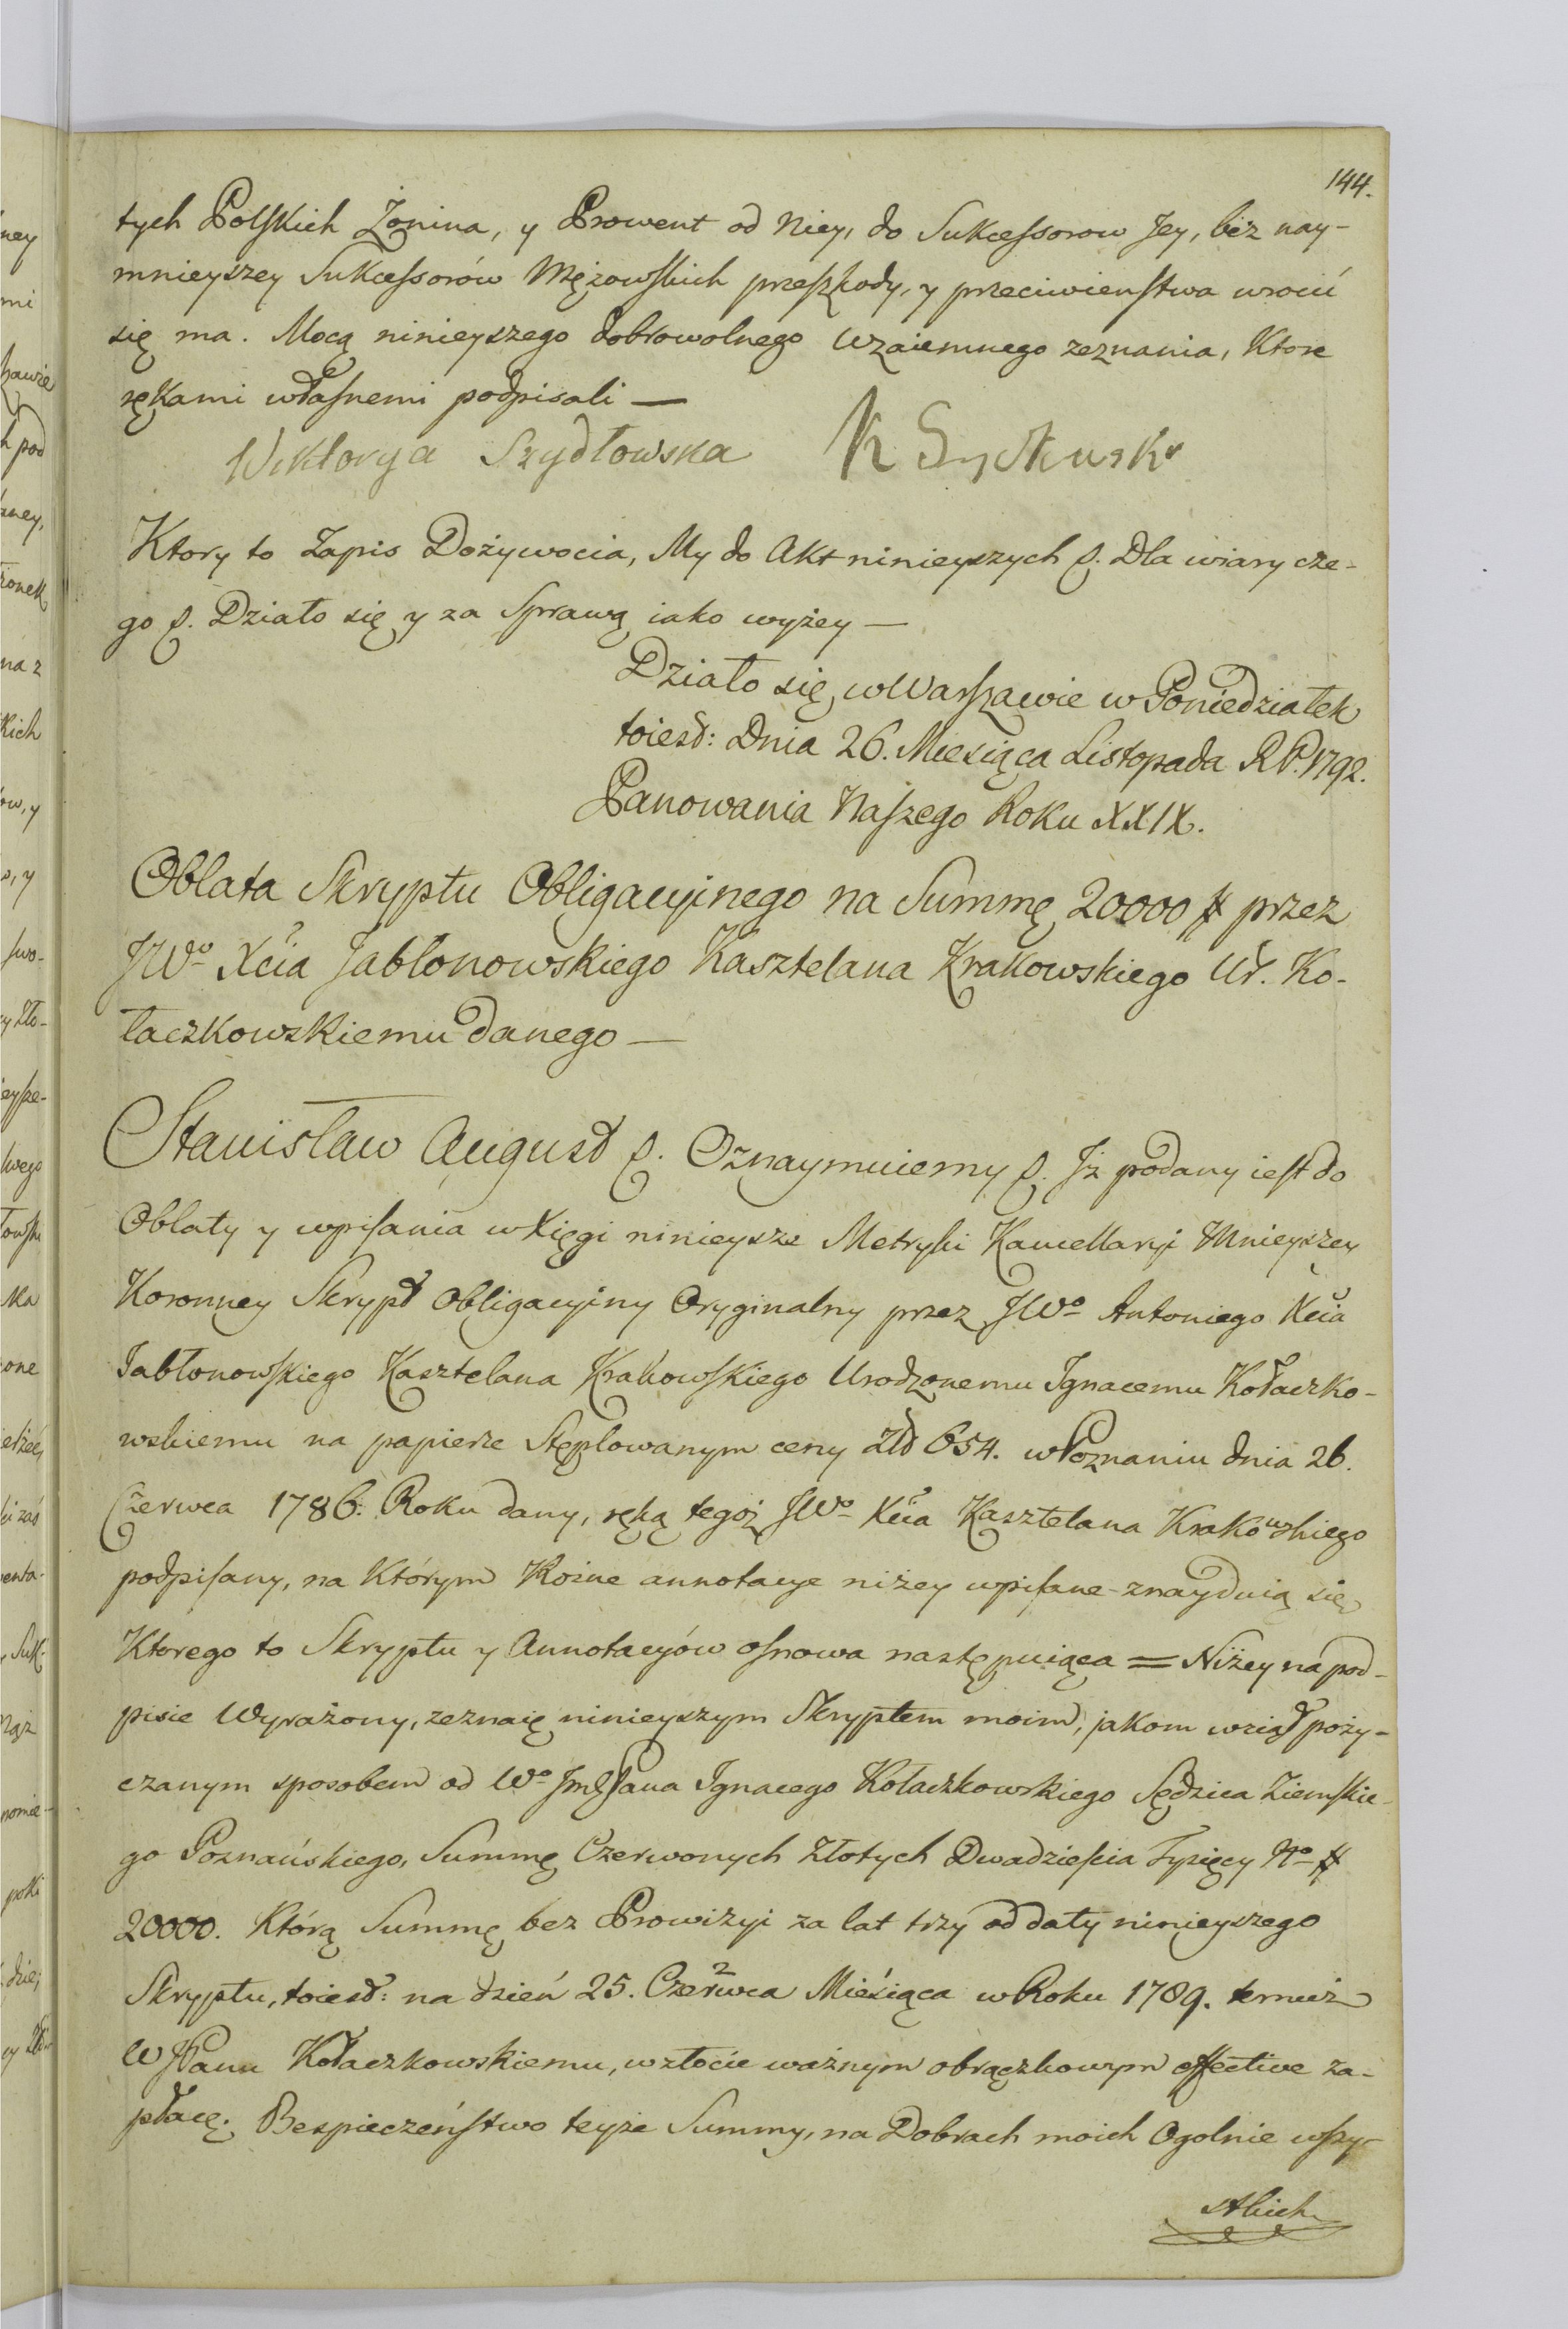 144.
tych Polskich Żonina, y Prowent od Niey, do Sukcessorow Jey, bez nay-
mnieyszey Sukcessorów Mężowskich przeszkody, y przeciwieństwa wrocić
się ma. Mocą ninieyszego dobrowolnego wzaiemnego zeznania, Ktore
rękami własnemi podpisali —
Wiktorya Szydłowska K Szydłowski
Ktory to Zapis Dożywocia, My do Akt ninieyszych p. Dla wiary cze-
go p. Działo się y za Sprawą iako wyżey —
Działo się w Warszawie w Poniedziałek
toiesd: Dnia 26. Miesiąca Listopada R.P. 1792.
Panowania Naszego Roku XXIX.
Oblata Skryptu Obligacyinego na Summę 20000 # przez
JWo Xcia Jabłonowskiego Kasztelana Krakowskiego Ur. Ko-
łaczkowskiemu danego —
Stanisław August p. Oznaymuiemy p. Jż podany iest do
Oblaty y wpisania w Xięgi ninieysze Metryki Kancellaryi Mnieyszey
Koronney Skrypt Obligacyiny Oryginalny przez JWo Antoniego Xcia
Jabłonowskiego Kasztelana Krakowskiego Urodzonemu Jgnacemu Kołaczko-
wskiemu na papierze Stęplowanym ceny Złł 654. w Poznaniu dnia 26.
Czerwca 1786. Roku dany, ręką tegoż JWo Xcia Kasztelana Krakowskiego
podpisany, na Którym Rożne annotacye niżey wpisane znayduią się
Ktorego to Skryptu y Annotacyów osnowa następuiąca = Niżey na pod-
pisie Wyrażony, zeznaię ninieyszym Skryptem moim, jakom wziął poży-
czanym sposobem od Wo Jmć Pana Jgnacego Kołaczkowskiego Sędzica Ziemskie-
go Poznańskiego, Summę Czerwonych Złotych Dwadzieścia Tysięcy No #
20000. Którą Summę bez Prowizyi za lat trzy od daty ninieyszego
Skryptu, toiesd: na dzień 25. Czerwca Miesiąca w Roku 1789. temuż
WJPanu Kołaczkowskiemu, w złocie ważnym obrączkowym effective za-
płacę. Bespieczeństwo teyże Summy, na Dobrach moich Ogolnie wszy-
stkich